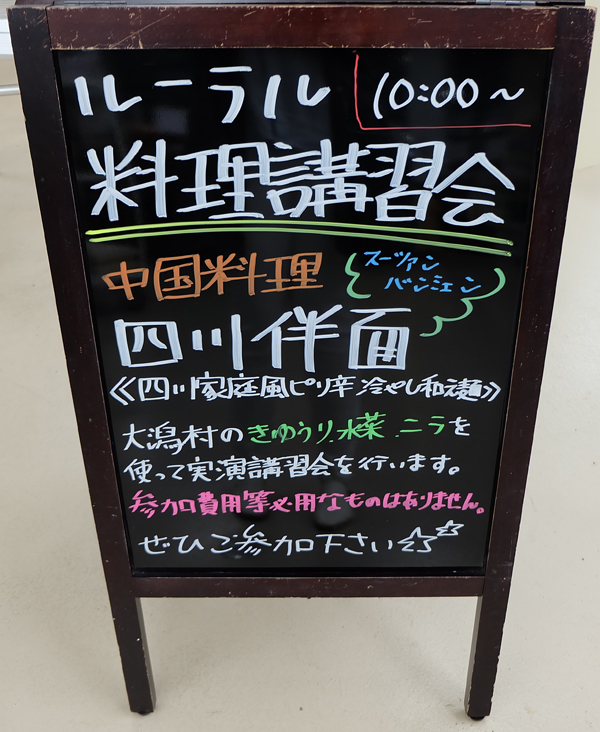 ルーラル 10:00～
料理講習会
中国料理 スーツァン
バンミェン
四川伴面
《四川家庭風ピリ辛 冷やし和え麺》
大潟村のきゅうり.水菜.ニラを
使って実演講習会を行います。
参加費用等必用なものはありません。
ぜひご参加下さい☆☆